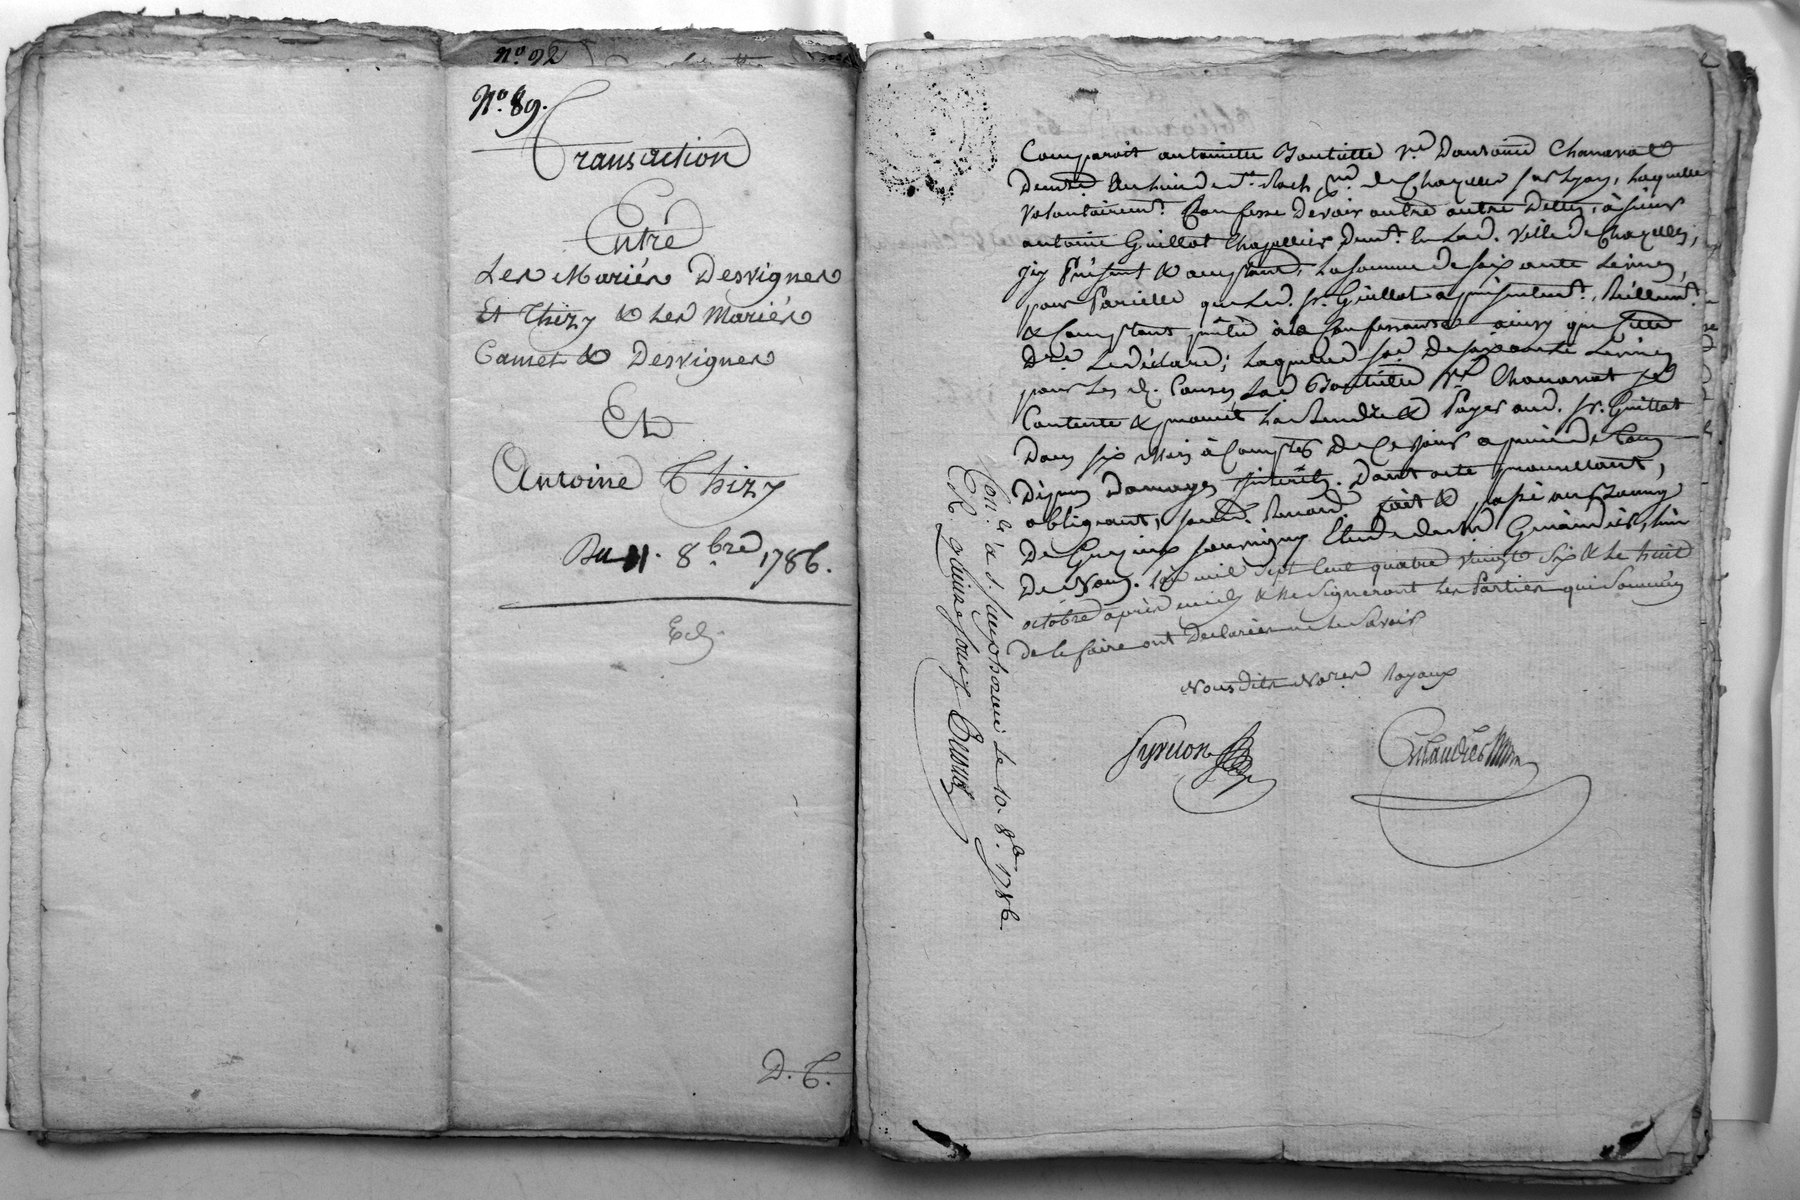 N.o 92
N.o 89.
Transaction
Entre
Les Mariés Desvignes
Et Thizy & Les Mariés
Camet & Desvignes
Et
Antoine Thizy
Du 11. 8.bre 1786.
D. T.
Comparoit antoinette v.e Chanavat
de Chazelles sur Lyon, Laquelle
volontairem.t Confesse devoir outre autre dette, à sieur
antoine Guillot Chapellier dem.t en Lad. ville de Chazelles,
présent & acceptant, La somme de soixante Livres,
pour Pareille que Led. sr. Guillot a présentement, Réellem.t
& Comptant prêtée à la Confessante ainsy que Cette
Dre. Le déclare; Laquelle soe. de soixante Livres
pour Les d. Causes Lad v.e Chanavat
Contente & promet La Rendre & Payer aud. sr. Guillot
Dans six Mois à Compter de Ce jour a peine de tous
Dépens Domages intérêts. Dont acte promettant,
obligeant, renonc. fait & passé au Bourg
De Etude de
De Nous. L'an mil sept Cent quatre vingt Six & Le huit
octobre après midy & Ne Signeront Les Parties qui Sommées
de le faire ont Declarées ne Le Savoir
Nous dits No.res Royaux
Con.lé a s. simphorien Le 10. 8.b. 1786.
R. quinze sous